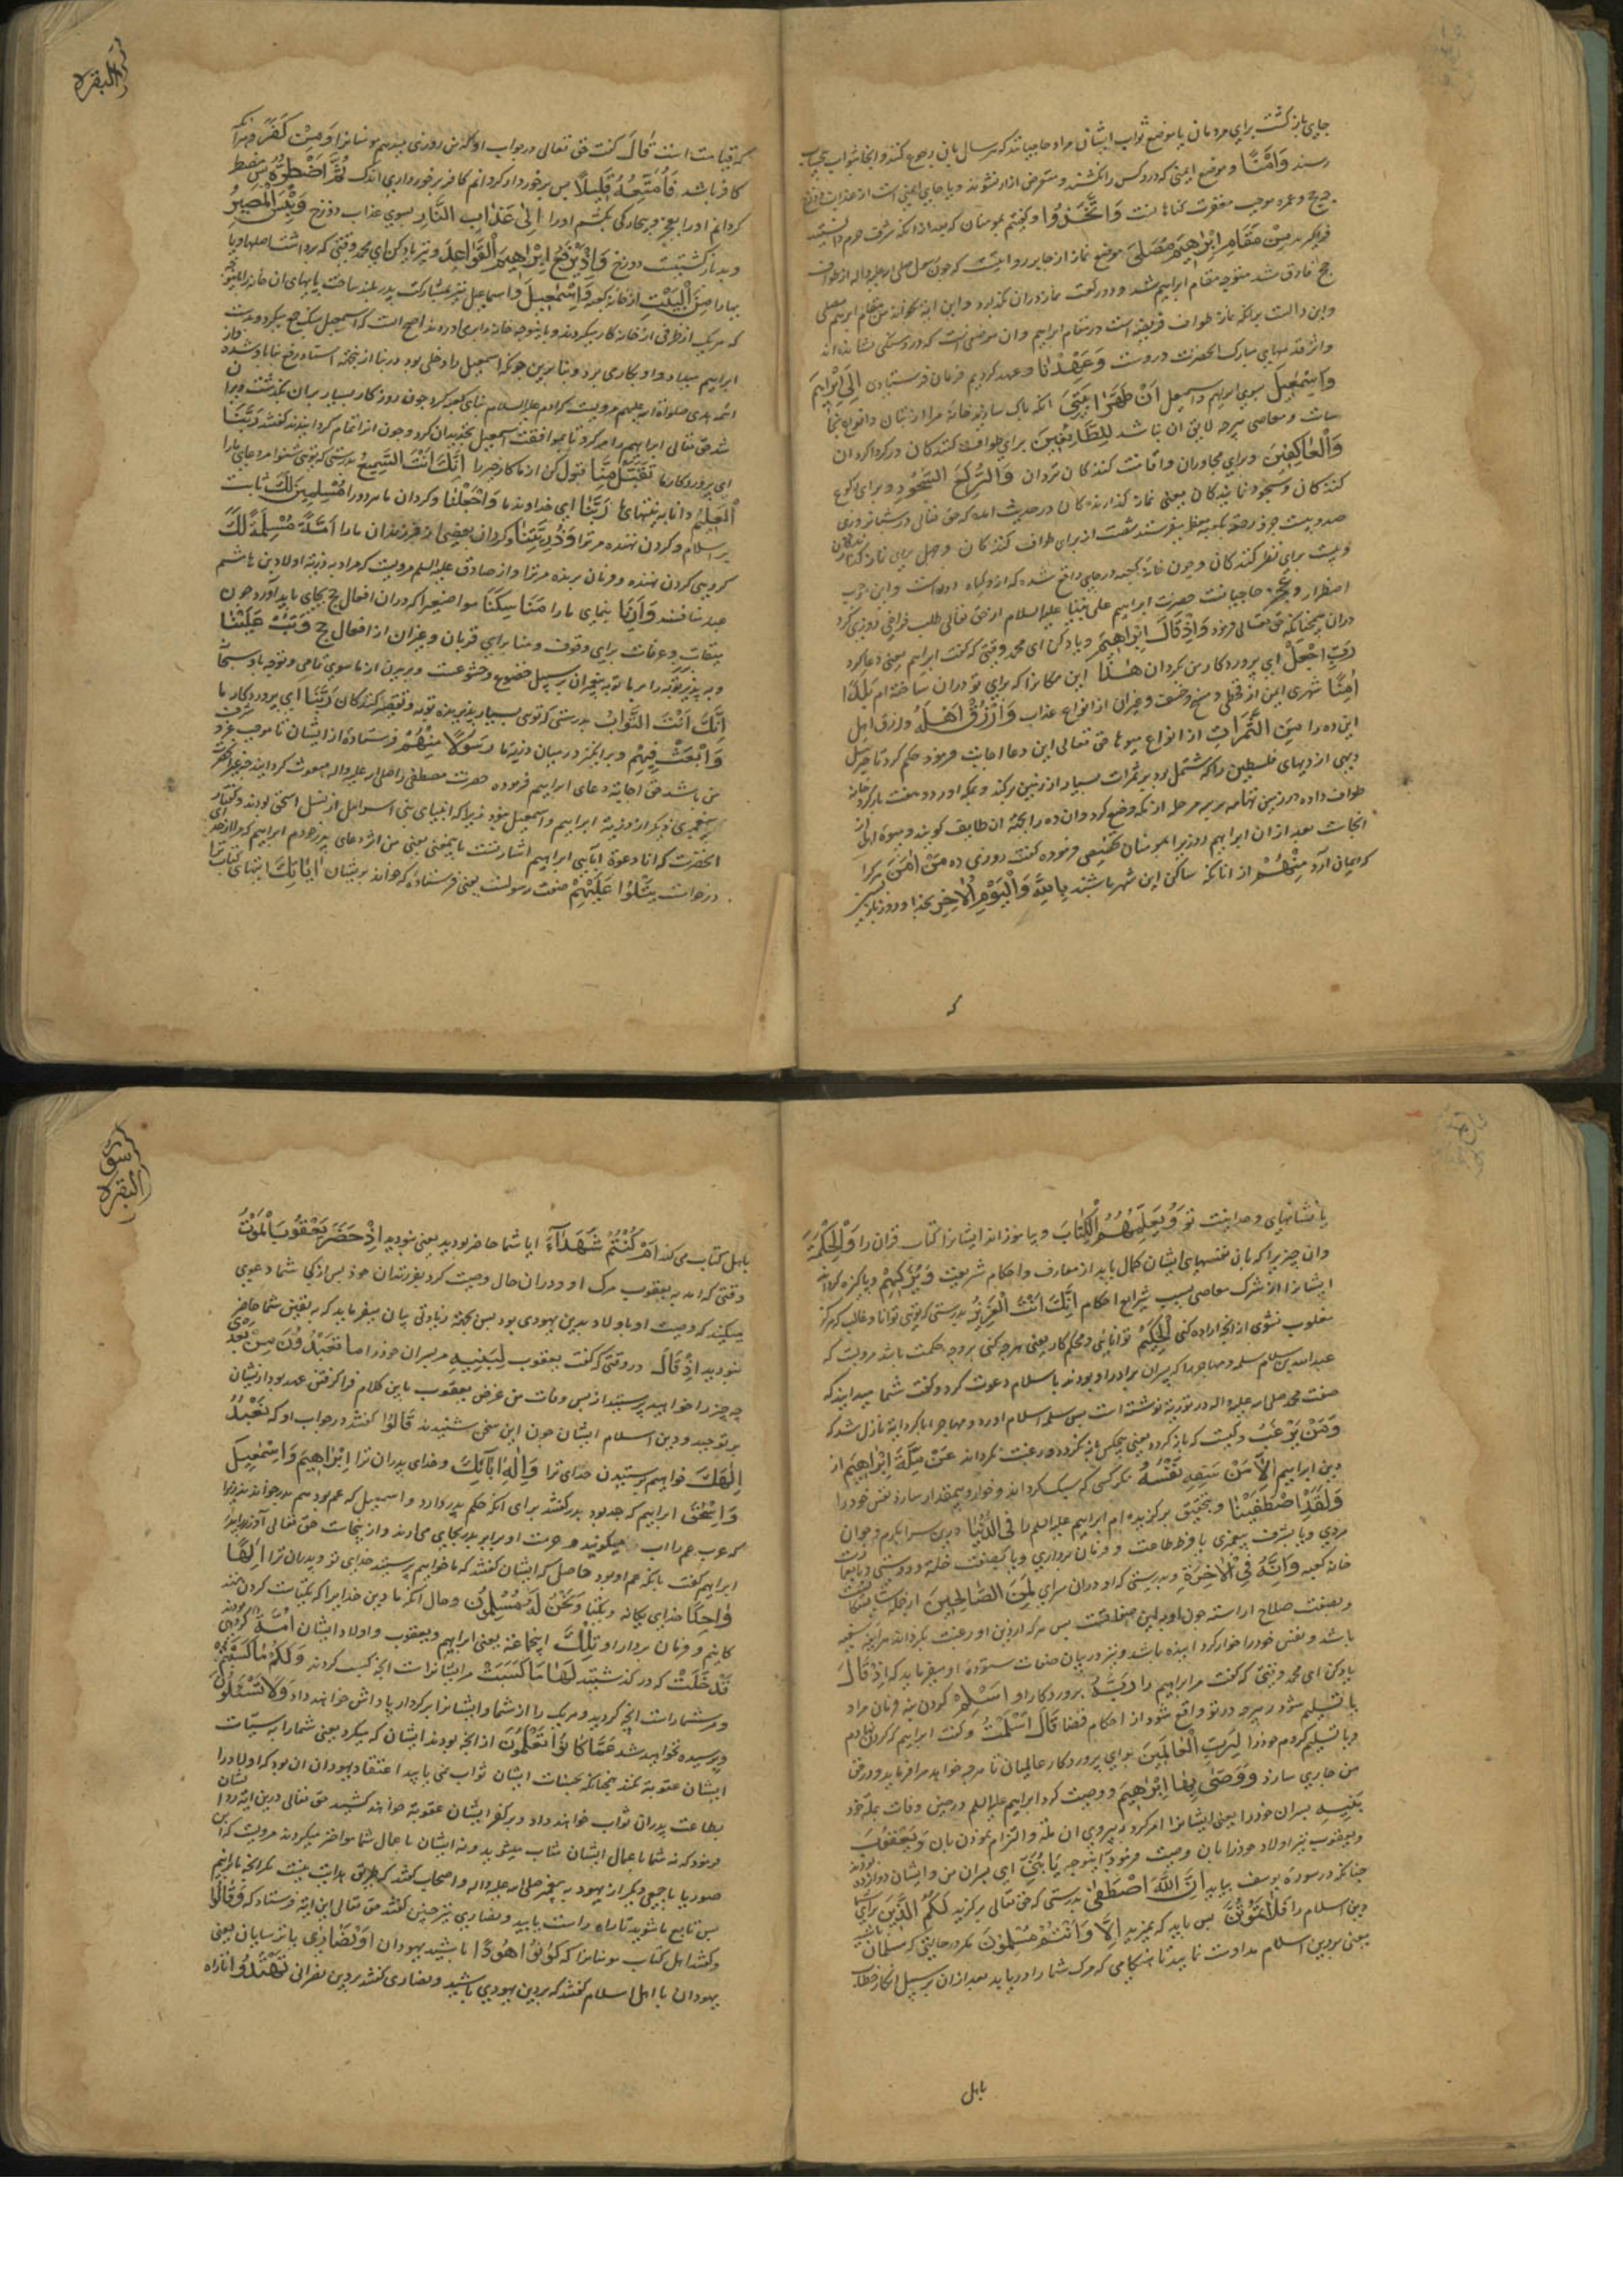 جای بازگشت برای مردمان یا موضع ثواب ایشان مراد حاجیانند که هر سال بان رجوع کنند و انجا بثواب بیحساب
رسند وَاَمْنًا و موضع ایمنی که درو کس را نکشند و متعرض ازار نشوند و یا جای ایمنی است از عذاب دوزخ
حج و عمره موجب مغفرت کناهانست وَاتَّخَذُوا و کفتیم بمومنان که بعد از انکه شرف حرم
فراکیرید مِنْ مَقَامِ اِبْرٰاهِیمَ مُصَلّیً موضع نماز از جابر روایتست که چون رسول صلی الله علیه واله از طواف
حج فارغ شد متوجه مقام ابراهیم شد و دو رکعت نماز دران بکذارد و این ایه بخواند من مقام ابراهیم مصلی
و این دالست برانکه نماز طواف فریضه است در مقام ابراهیم و ان موضعی است که در و سنکی نشانده اند
و اثر قدمهای مبارک انحضرت دروست وَعَهِدْنٰا و عهد کردیم فرمان فرستادن اِلٰی اِبْرٰاهِیمَ
وَاِسْمٰعِیلَ سوی ابراهیم و اسمعیل اَنْ طَهِّرٰا بَیْتِیَ انکه پاک سازید خانه مرا از بتان و انواع نجا
سات و معاصی هرچه لایق ان نباشد لِلطَّائِفِینَ برای طواف کنندکان در کرداکرد ان
وَالْعٰاکِفِینَ و برای مجاوران و اقامت کنندکان دران وَالرُّکَّعِ السُّجُودِ و برای رکوع
کنندکان و سجود نمایندکان یعنی نماز کذارندکان در حدیث امده که حق تعالی در شبانروزی
صد و بیست جزو رحمة بکعبه معظمه میفرستد شصت از برای طواف کنندکان و چهل برای نماز کذارندکان
و بیست برای نظر کنندکان و چون خانه کعبه در جایی واقع شده که از و کیاه دورست و این موجب
اضطرار و عجز حاجیانست حضرت ابراهیم علی نبینا علیه السلام از حق تعالی طلب فراخی روزی کرد
دران چنانکه حق تعالی فرمود وَاِذْ قَالَ اِبْرٰاهِیمُ و یاد کن ای محمد وقتی که کفت ابراهیم یعنی دعا کرد
رَبِّ اجْعَلْ ای پروردکار من بکردان هٰذٰا این مکانرا که برای تو دران ساخته ام بَلَدًا
اٰمِنًا شهری ایمن از قحطی و مسخ و خسف و غیران از انواع عذاب وَارْزُقْ اَهْلَهُ و رزق اهل
این ده را مِنَ الثَّمَرَاتِ از انواع میوها حق تعالی این دعا اجابت فرمود حکم کرد تا جبرئیل
دیهی از دیهای فلسطین را که مشتمل بود بر ثمرات بسیار از زمین برکند و بمکه اورد و هفت بار کرد خانه
طواف داده در زمین تهامه بر سه مرحله از مکه وضع کرد و ان ده را بجهة ان طایف کویند و میوه اهل
انجاست بعد از ان ابراهیم روزی را بمومنان تخصیص فرموده کفت روزی ده مَنْ اٰمَنَ هرکرا
که ایمان آرد مِنْهُمْ از انانکه ساکن این شهر باشند بِاللّٰهِ وَالْیَوْمِ الْاٰخِرِ بخدا و روز بازپسین
که
البقره
که قیامت است قٰالَ کفت حق تعالی در جواب او که من روزی میدهم مومنانرا وَمَنْ کَفَرَ و هرانکه
کافر باشد فَاُمَتِّعُهُ قَلِیلًا پس برخوردار کردانم کافر برخورداری اندک ثُمَّ اَضْطَرُّهُ پس مضطر
کردانم اورا بعجز و بیچارکی بکشم اورا اِلٰی عَذٰابِ النَّارِ بسوی عذاب دوزخ وَبِئْسَ الْمَصِیرُ
و بد بازکشتیست دوزخ وَاِذْ یَرْفَعُ اِبْرٰاهِیمُ الْقَوٰاعِدَ و نیز یاد کن ای محمد وقتی که برداشت اصلها و پا
یها را مِنَ الْبَیْتِ از خانه کعبه وَاِسْمٰعِیلَ و اسماعیل نیز بمشارکت پدر بلند ساخت پایهای ان خانه را
که هریک از طرفی از خانه کار میکردند
ابراهیم میداد و او بکاری برد و بنا برین چونکه اسمعیل را دخلی بود در بنا از بجهة اسناد رفع بنا باو شده
ائمه هدی صلوات الله علیهم مرویست که آدم علیه السلام بنای کعبه کرد چون روزکار بسیار بران بکذشت ویران
شد حق تعالی ابراهیم را امر کرد تا بموافقت اسمعیل تجدید ان کرد و چون از اتمام کردانیدند کفتند رَبَّنَا
ای پروردکار ما تَقَبَّلْ مِنَّا قبول کن از ما کار خیر را اِنَّکَ اَنْتَ السَّمِیعُ بدرستی که تویی شنوا مر دعای مارا
الْعَلِیمُ دانا به نیتهای ما رَبَّنٰا ای خداوند ما وَاجْعَلْنٰا و کردان ما هر دو را مُسْلِمَیْنِ لَکَ ثابت
بر اسلام و کردن نهنده مر ترا وَذُرِّیَّتِنٰا و کردان بعضی از فرزندان مارا اُمَّةً مُسْلِمَةً لَکَ
کروهی کردن نهنده و فرمان برنده مر ترا و از صادق علیه السلم مرویست که مراد به ذریة اولاد بن هاشم
عبد منافند وَاَرِنٰا بنمای مارا مَنَاسِکَنٰا مواضعیرا که دران افعال حج بجای باید آورد چون
میقات و عرفات برای وقوف و منا برای قربان و غیران از افعال حج وَتُبْ عَلَیْنٰا
و به پذیر توبه را
اِنَّکَ اَنْتَ التَّوَّابُ بدرستی که تویی بسیار پذیرنده توبه رَبَّنٰا ای پروردکار ما
وَابْعَثْ فِیهِمْ و برانکیز در میان ذریة ما رَسُولًا مِنْهُمْ فرستاده از ایشان تا موجب عز و شرف
من باشد حق اجابة دعای ابراهیم فرموده حضرت مصطفی را صلی الله علیه واله مبعوث کردانید
پیغمبری دیکر از ذریة ابراهیم و اسمعیل نبود زیرا که انبیای بنی اسرائیل از نسل اسحق بودند
انحضرت که انا دعوة ابی ابراهیم اشارتست باینمعنی یعنی من اثر دعای پدر خودم ابراهیم که
درخواست یَتْلُوا عَلَیْهِمْ صفت رسولست یعنی فرستاده که خواند بریشان اٰیٰاتِکَ ایتهای کتاب ترا
یا نشانهای وحدانیت تو وَیُعَلِّمُهُمُ الْکِتٰابَ و بیاموزاند ایشانرا کتاب قرآن را وَالْحِکْمَةَ
وان چیزیرا که بان نفسهای ایشان کمال یابد از معارف و احکام شریعت وَیُزَکِّیهِمْ و پاکیزه کرداند
ایشانرا از شرک معاصی بسبب شرایع احکام اِنَّکَ اَنْتَ الْعَزِیزُ بدرستی که تویی توانا و غالب که هرکز
مغلوب نشوی از انچه اراده کنی الْحَکِیمُ توانایی و محکم کار یعنی هرچه کنی بروجه حکمت باشد مرویست که
عبدالله بن سلام سلمه و مهاجر را که پسران برادر او بودند باسلام دعوت کرد و کفت شما میدانید که
صفت محمد صلی الله علیه واله در توریة نوشته است پس سلمه اسلام آورد و مهاجر ابا کرد ایة نازل شد که
وَمَنْ یَرْغَبُ و کیست که باز کردد یعنی هیچکس باز نکردد و رغبت نکرداند عَنْ مِلَّةِ اِبْرٰاهِیمَ از
دین ابراهیم اِلَّا مَنْ سَفِهَ نَفْسَهُ مکر کسی که سبک کرداند و خوار و بیمقدار سازد نفس خود را
وَلَقَدِ اصْطَفَیْنٰاهُ و بتحقیق برکزیده ام ابراهیم علیه السلم را فِی الدُّنْیٰا درین سرا بکرم و جوان
مردی و یا بشرف پیغمبری یا وفور طاعت و فرمان برداری و یا بصفت خلة و دوستی و یا بعمارت
خانه کعبه وَاِنَّهُ فِی الْاٰخِرَةِ و بدرستی که او دران سرای لَمِنَ الصَّالِحِینَ از جمله شایستکانست
و بصفت صلاح اراسته چون او بدین صفاتست پس هرکه از دین او رغبت بکرداند هراینه سفیه
باشد و نفس خود را خوار کرد انیده باشد و نیز در بیان صفات ستوده او میفرماید که اِذْ قٰالَ
یاد کن ای محمد وقتی که کفت مر ابراهیم را رَبُّهُ پروردکار او اَسْلِمْ کردن بنه فرمان مرا و
یا تسلیم شو در هرچه در تو واقع شود از احکام قضا قٰالَ اَسْلَمْتُ و کفت ابراهیم که کردن نهادم
و یا تسلیم کردم خود را لِرَبِّ الْعٰالَمِینَ برای پروردکار عالمیان تا هرچه خواهد مرا فرماید و در حق
من جاری سازد وَوَصّٰی بِهٰا اِبْرٰاهِیمُ و وصیت کرد ابراهیم علیه السلم در حین وفات بملة خود
بَنِیهِ پسران خود را یعنی ایشانرا امر کرد به پیروی ان ملة و التزام نمودن بان وَیَعْقُوبُ
و یعقوب نیز اولاد خود را بان وصیت فرمود بدینوجه یٰا بَنِیَّ ای پسران من و ایشان دوازده بودند
چنانکه در سوره یوسف بیاید اِنَّ اللّٰهَ اصْطَفٰی بدرستی که حق تعالی برکزید لَکُمُ الدِّینَ برای شما
دین اسلام را فَلٰا تَمُوتُنَّ پس باید که نمیرید اِلَّا وَاَنْتُمْ مُسْلِمُونَ مکر در حالتی که مسلمان باشید
یعنی بر دین اسلام مداومت نمایید تا هنکامی که مرک شما را دریابد بعد از ان بر سبیل انکار خطاب
باهل
سورة
البقره
باهل کتاب می کند اَمْ کُنْتُمْ شُهَدَاءَ ایا شما حاضر بودید یعنی نبودید اِذْ حَضَرَ یَعْقُوبَ الْمَوْتُ
وقتی که امد به یعقوب مرک او و دران حال وصیت کرد بفرزندان خود پس از کی شما دعوی
میکنید که وصیت او باولاد بدین یهودی بود پس بجهة زیادتی بیان میفرماید که به یقین شما حاضر
نبودید اِذْ قٰالَ در وقتی که کفت یعقوب لِبَنِیهِ مر پسران خود را مٰا تَعْبُدُونَ مِنْ بَعْدِی
چه چیز را خواهید پرستید از پس وفات من غرض یعقوب باین کلام فرا کرفتن عهد بود از ایشان
بر توحید و دین اسلام ایشان چون این سخن شنیدند قٰالُوا کفتند در جواب او که نَعْبُدُ
اِلٰهَکَ خواهیم پرستیدن خدای ترا وَاِلٰهَ اٰبٰائِکَ و خدای پدران ترا اِبْرٰاهِیمَ وَاِسْمٰعِیلَ
وَاِسْحٰقَ ابراهیم که جد بود پدر کفتند برای انکه حکم پدر دارد و اسمعیل که عم بود هم پدر خواندند زیرا
که عرب عم را اب میکویند و حرمت او برابر پدر بجای می آرند و از ینجاست حق تعالی آزر را پدر
ابراهیم کفت با انکه عم او بود حاصل که ایشان کفتند که ما خواهیم پرستید خدای تو و پدران ترا اِلٰهًا
وٰاحِدًا خدای یکانه و یکتا وَنَحْنُ لَهُ مُسْلِمُونَ و حال انکه ما بدین خدایرا که بیکتایی کردن نهند
کانیم و فرمان بردار او تِلْکَ اینجماعة یعنی ابراهیم و یعقوب و اولاد ایشان اُمَّةٌ کروهی بودند
قَدْ خَلَتْ که در کذشتند لَهٰا مٰا کَسَبَتْ مر ایشانراست انچه کسب کردند وَلَکُمْ مٰا کَسَبْتُمْ
و مر شماراست انچه کردید و هریک را از شما و ایشانرا بر کردار پاداش خواهند داد وَلٰا تُسْئَلُونَ
و پرسیده نخواهید شد عَمَّا کٰانُوا یَعْمَلُونَ از انچه بودند ایشان که میکردند یعنی شما را به سیّات
ایشان عقوبة نکنند همچنانکه بحسنات ایشان ثواب نمی یابید اعتقاد یهودان ان بود که اولاد را
بطاعت پدران ثواب خواهند داد و بر کفر ایشان عقوبة خواهند کشید حق تعالی درین ایه رد ایشان
فرمود که نه شما باعمال ایشان مثاب میشوید و نه ایشان باعمال شما مواخذ میکردند مرویست که ابن
صوریا با جمعی دیکر از یهود به پیغمبر صلی الله علیه واله و اصحاب کفتند که طریق هدایت نیست مکر انچه ما برانیم
پس تابع ما شوید تا راه راست یابید و نصاری نیز چنین کفتند حق تعالی این ایة فرستاد که وَقٰالُوا
و کفتند اهل کتاب مومنانرا که کُونُوا هُودًا باشید یهودان اَوْ نَصٰارٰی یا ترسایان یعنی
یهودان با اهل اسلام کفتند که بر دین یهودی باشید و نصاری کفتند بر دین نصرانی تَهْتَدُوا تا راه